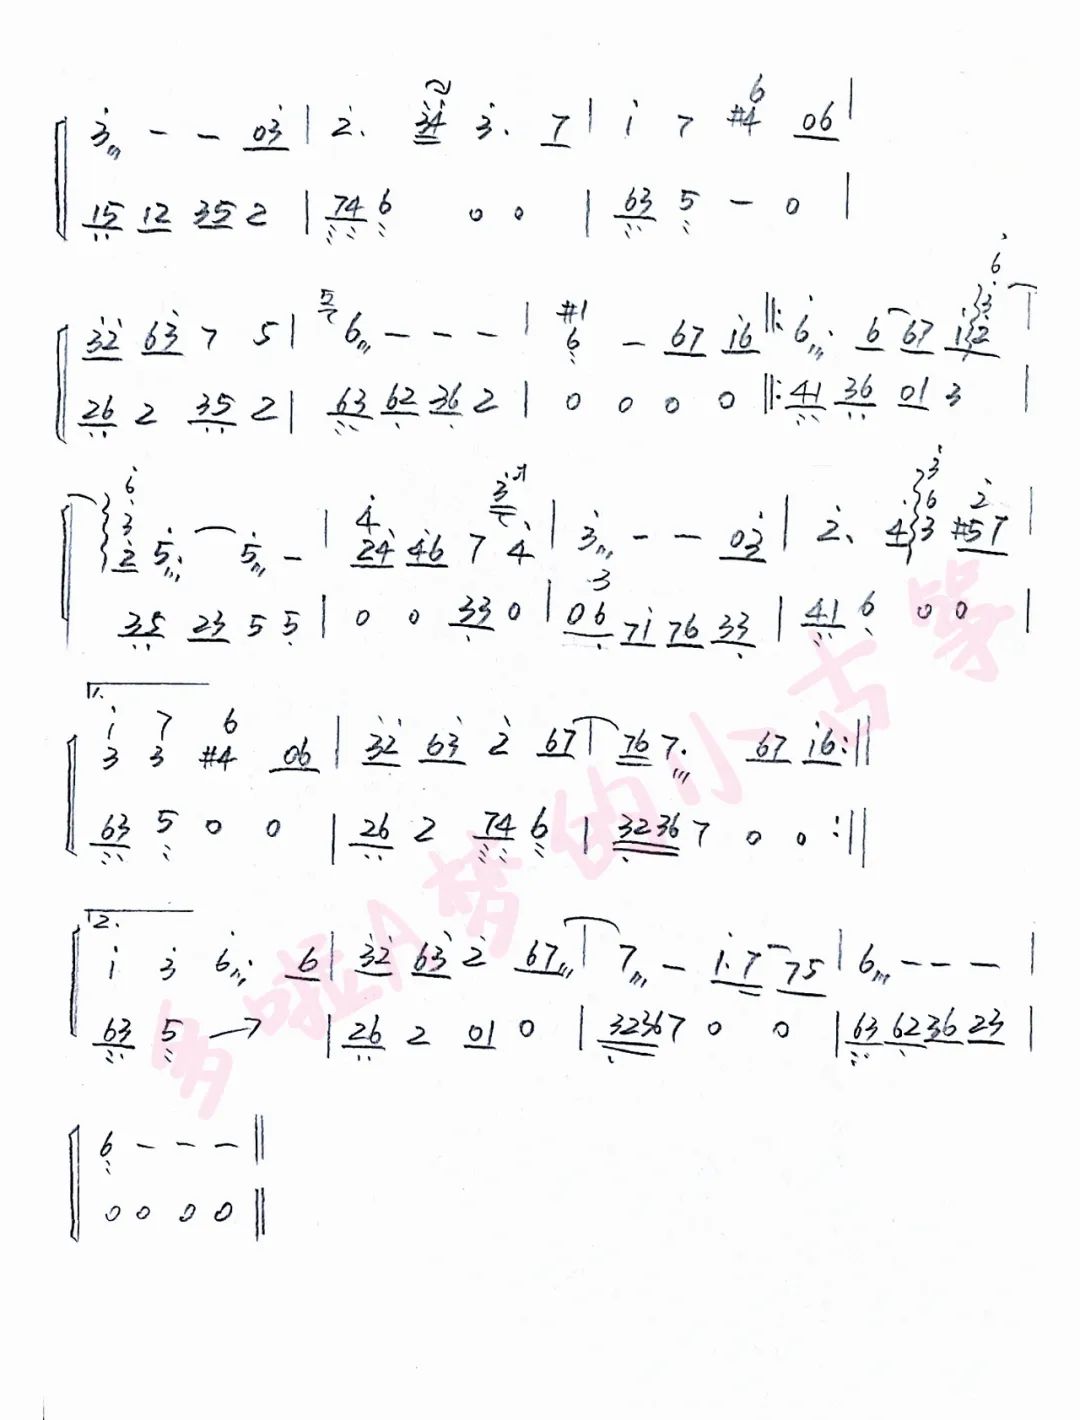 3 - - 03 | 2. 34 3. 7 | 1 7 #4 6 06 |
15 12 35 2 | 74 6 0 0 | 63 5 - 0 |
32 63 7 5 | 5 6 - - - | #1 6 - 67 16 ‖: 6. 6 67 1 2 3 6 |
26 2 35 2 | 63 62 36 2 | 0 0 0 0 ‖: 41 36 01 3 |
2 3 6 5. 5 - | 4 24 46 7 3 4 | 3 - - 03 | 2. 4 3 6 3 #5 2 7 |
35 23 5 5 | 0 0 33 0 | 06 3 71 76 33 | 41 6 0 0 |
1.
1 7 6
3 3 #4 06 | 32 63 2 67 | 76 7. 67 16 :‖
63 5 0 0 | 26 2 74 6 | 3236 7 0 0 :‖
2.
1 3 6. 6 | 32 63 2 67 | 7 - 1.7 75 | 6 - - - |
63 5 → | 26 2 01 0 | 3236 7 0 0 | 63 62 36 23 |
6 - - - ‖
0 0 0 0 ‖
多啦A梦的小古筝